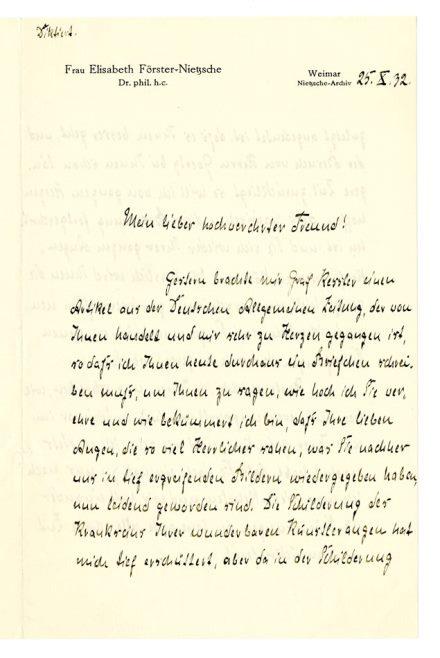 Diktiert.
Frau Elisabeth Förster-Nietzsche
Dr. phil. h.c.
Weimar
Nietzsche-Archiv 25. X. 32.
Mein lieber hochverehrter Freund!
Gestern brachte mir Graf Kessler einen
Artikel aus der Deutschen Allgemeinen Zeitung, der von
Ihnen handelt und mir sehr zu Herzen gegangen ist,
so daſs ich Ihnen heute durchaus ein Briefchen schrei-
ben muſs, um Ihnen zu sagen, wie hoch ich Sie ver-
ehre und wie bekümmert ich bin, daſs Ihre lieben
Augen, die so viel Herrliches sahen, was Sie nachher
uns in tief ergreifenden Bildern wiedergegeben haben,
nun leidend geworden sind. Die Schilderung der
Krankheit Ihrer wunderbaren Künstleraugen hat
mich tief erschüttert, aber da in der Schilderung